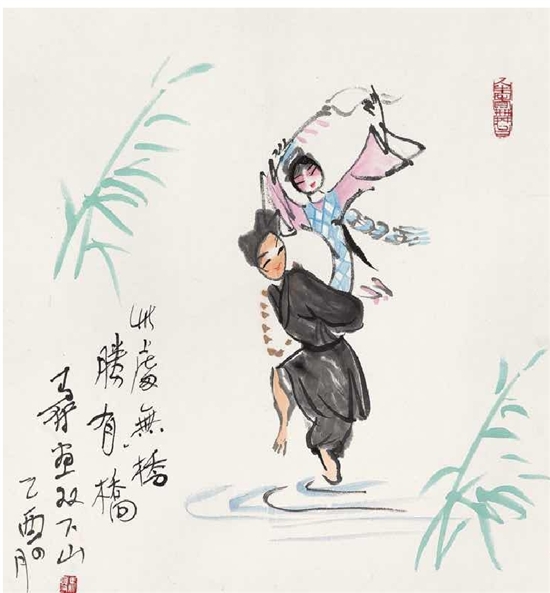 此處無橋
勝有橋
马得画双下山
乙酉四月